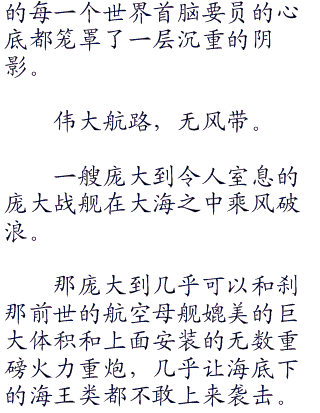 的每一个世界首脑要员的心
底都笼罩了一层沉重的阴
影。
伟大航路，无风带。
一艘庞大到令人室息的
庞大战舰在大海之中乘风破
浪。
那庞大到几乎可以和刹
那前世的航空母舰媲美的巨
大体积和上面安装的无数重
磅火力重炮，几乎让海底下
的海王类都不敢上来袭击。